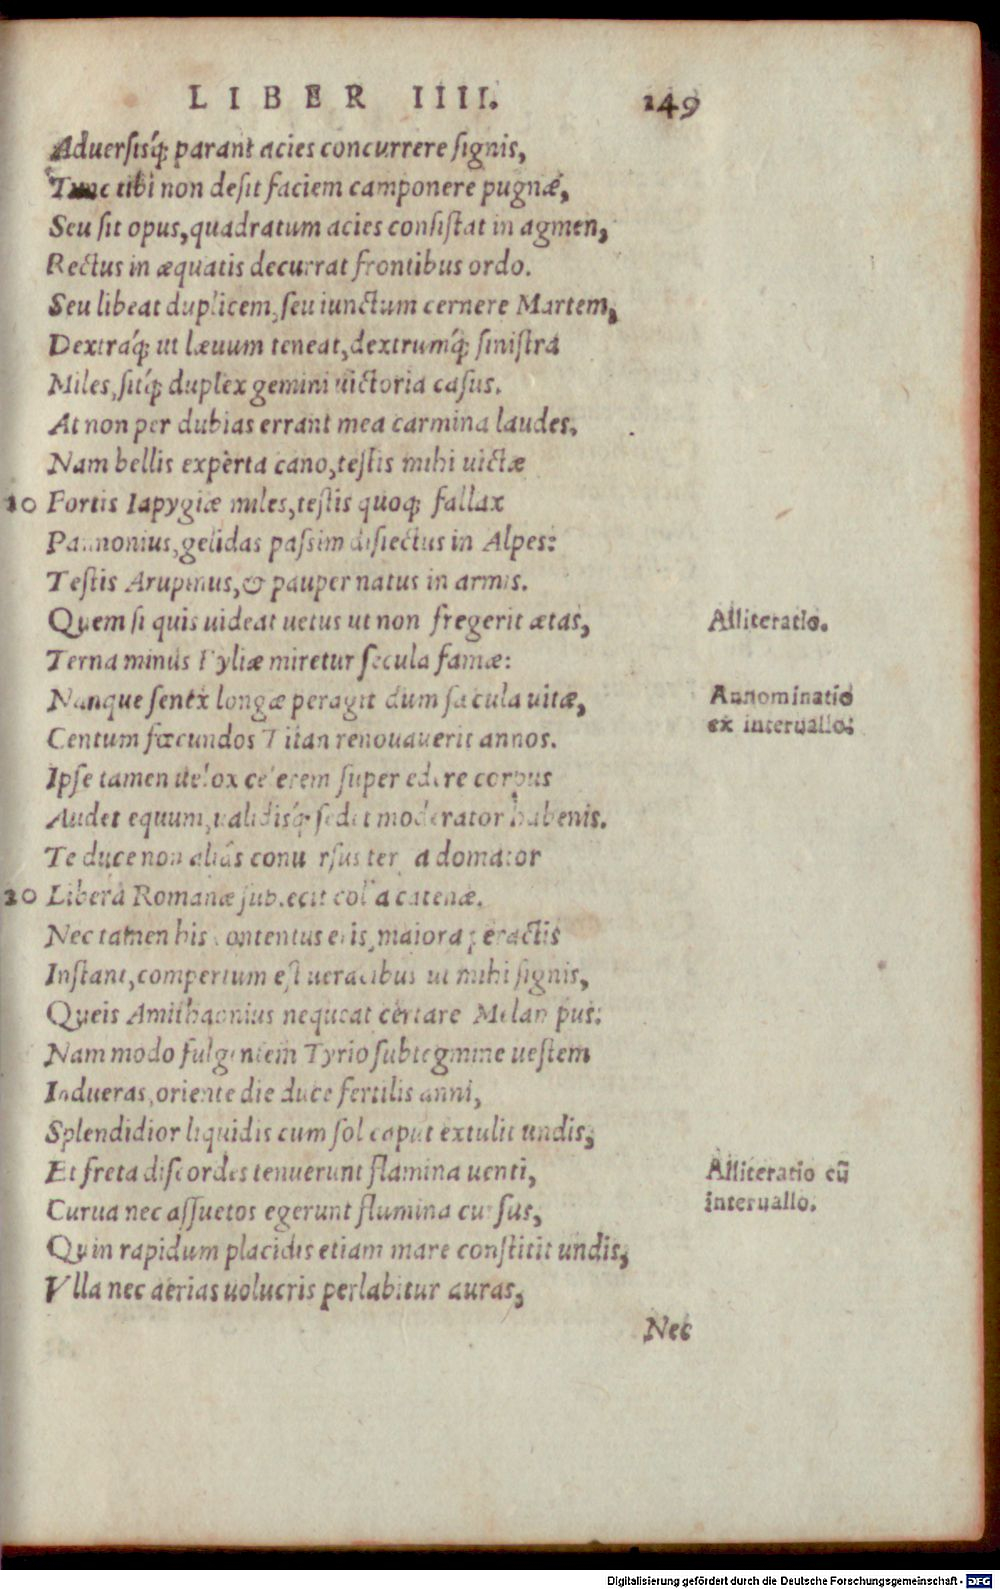 LIBER IIII. 149
Aduersisq́; parant acies concurrere signis,
Tunc tibi non desit faciem camponere pugnæ,
Seu sit opus, quadratum acies consistat in agmen,
Rectus in æquatis decurrat frontibus ordo.
Seu libeat duplicem, seu iunctum cernere Martem,
Dextraq́; ut læuum teneat, dextrumq́; sinistra
Miles, sitq́; duplex gemini uictoria casus.
At non per dubias errant mea carmina laudes.
Nam bellis experta cano, testis mihi uictæ
10 Fortis Iapygiæ miles, testis quoq; fallax
Pannonius, gelidas passim disiectus in Alpes:
Testis Arupinus, & pauper natus in armis.
Quem si quis uideat uetus ut non fregerit ætas,
Alliteratio.
Terna minus Pyliæ miretur secula famæ:
Nanque senex longæ peragit dum sæcula uitæ,
Annominatio
ex interuallo:
Centum fœcundos Titan renouauerit annos.
Ipse tamen uelox celerem super edere corpus
Audet equum, ualidisq́; sedet moderator habenis.
Te duce non aliàs conuersus terga domator
20 Libera Romanæ subiecit colla catenæ.
Nec tamen his contentus eris, maiora peractis
Instant, compertum est ueracibus ut mihi signis,
Queis Amithaonius nequeat certare Melampus:
Nam modo fulgentem Tyrio subtegmine uestem
Indueras, oriente die duce fertilis anni,
Splendidior liquidis cum sol caput extulit undis,
Et freta discordes tenuerunt flamina uenti,
Alliteratio cū
interuallo.
Curua nec assuetos egerunt flumina cursus,
Quin rapidum placidis etiam mare constitit undis,
Vlla nec aërias uolucris perlabitur auras,
Nec
Digitalisierung gefördert durch die Deutsche Forschungsgemeinschaft - DFG